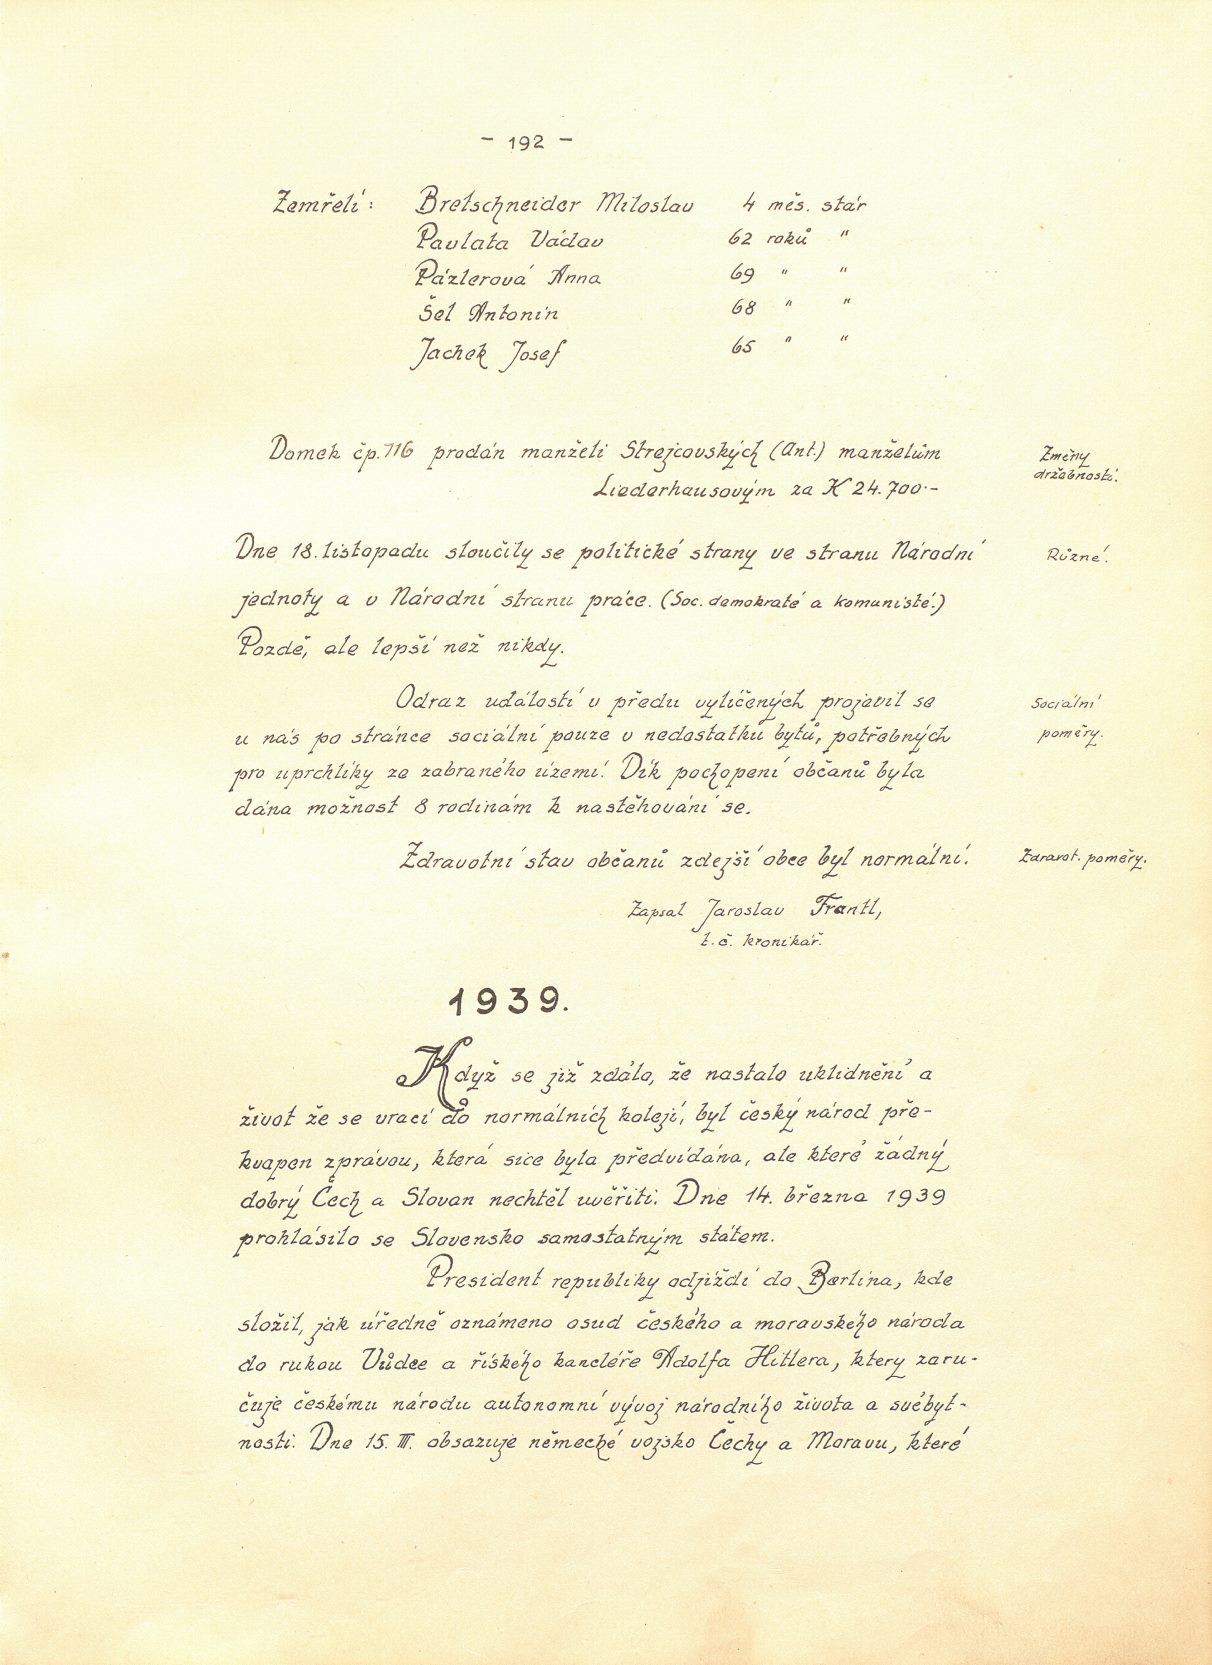 – 192 –
Zemřelí: Bretschneider Miloslav 4 měs. stár
Pavlata Václav 62 roků "
Pázlerová Anna 69 " "
Šel Antonín 68 " "
Jachek Josef 65 " "
Domek čp. 116 prodán manželi Strejcovských (Ant.) manželům
Změny
držebnosti.
Liederhausovým za K 24.700·-
Dne 18. listopadu sloučily se politické strany ve stranu Národní
Různé.
jednoty a v Národní stranu práce. (Soc. demokraté a komunisté.)
Pozdě, ale lepší než nikdy.
Odraz událostí v předu vylíčených projevil se
Sociální
poměry.
u nás po stránce sociální pouze v nedostatku bytů, potřebných
pro uprchlíky ze zabraného území. Dík pochopení občanů byla
dána možnost 8 rodinám k nastěhování se.
Zdravotní stav občanů zdejší obce byl normální.
Zdravot. poměry.
Zapsal Jaroslav Frantl,
t. č. kronikář.
1939.
Když se již zdálo, že nastalo uklidnění a
život že se vrací do normálních kolejí, byl český národ pře-
kvapen zprávou, která sice byla předvídána, ale které žádný
dobrý Čech a Slovan nechtěl uvěřiti. Dne 14. března 1939
prohlásilo se Slovensko samostatným státem.
President republiky odjíždí do Berlína, kde
složil, jak úředně oznámeno osud českého a moravského národa
do rukou Vůdce a říského kancléře Adolfa Hitlera, ktery zaru-
čuje českému národu autonomní vývoj národního života a svébyt-
nosti. Dne 15. III. obsazuje německé vojsko Čechy a Moravu, které